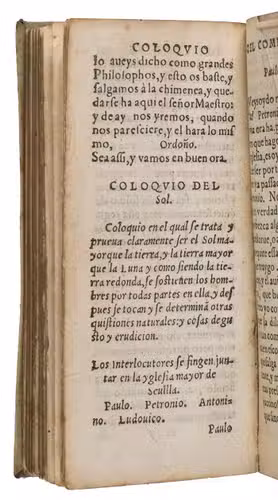 COLOQVIO
lo aueys dicho como grandes
Philosophos, y esto os baste, y
salgamos à la chimenea, y que-
darse ha aqui el señor Maestro:
y de ay nos yremos, quando
nos paresciere, y el hara lo mis
mo, Ordoño.
Sea assi, y vamos en buen ora.
COLOQVIO DEL
Sol.
Coloquio en el qual se trata y
prueua claramente ser el Sol ma-
yor que la tierra, y la tierra mayor
que la Luna y como siendo la tie-
rra redonda, se sostienen los hom-
bres por todas partes en ella, y des
pues se tocan y se determinã otras
quistiones naturales: y cosas de gu
sto y erudicion.
Los interlocutores se fingen jun-
tar en la yglesia mayor de
Seuilla.
Paulo. Petronio. Antoni-
no. Ludouico.
Paulo
DEL COM